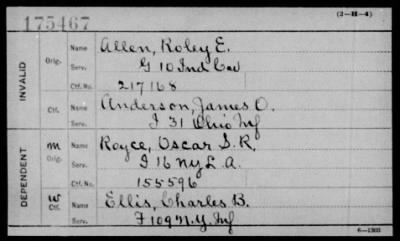 175467
(2-II-4)
INVALID
Orig.
Name Allen, Roley E.
Serv. G 10 Ind Cav
Ctf. No. 217168
Ctf.
Name Anderson, James O.
Serv. I 31 Ohio Inf
DEPENDENT
M
Orig.
Name Royce, Oscar S.R.
Serv. I 16 N.Y.L.A.
Ctf. No. 155596
W
Ctf.
Name Ellis, Charles B.
Serv. F 109 N.Y. Inf